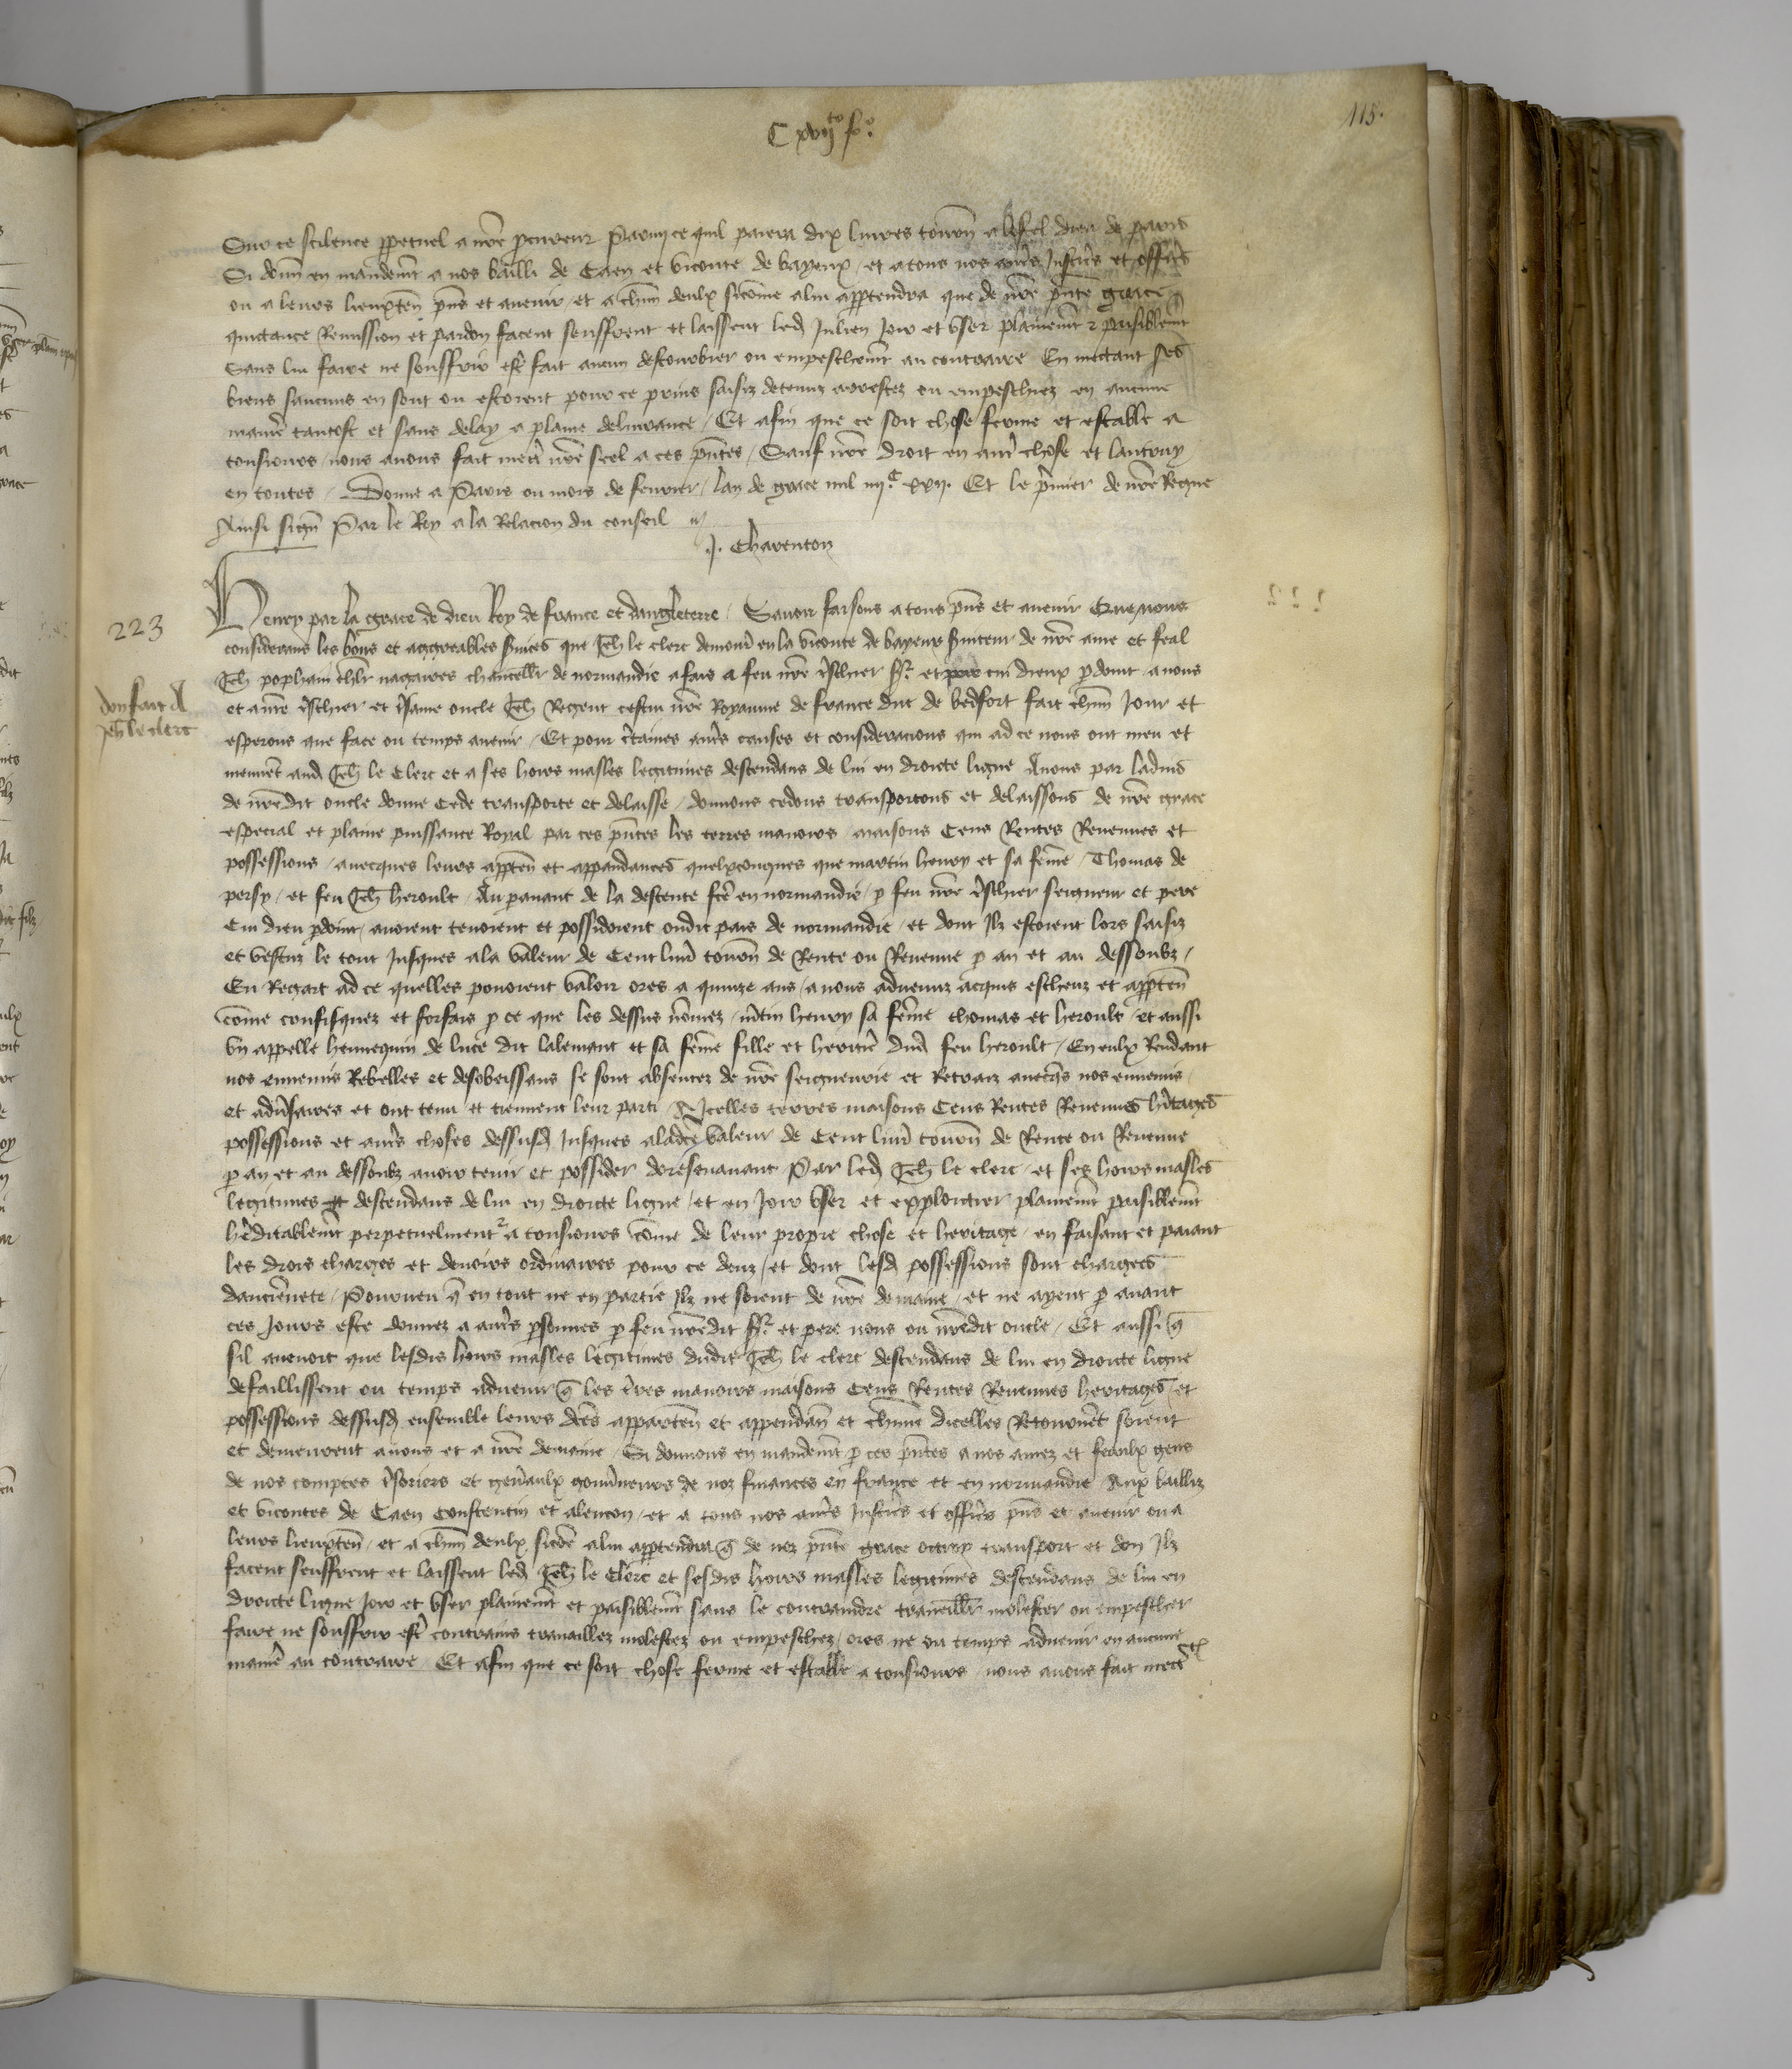 C xvijto fo.
115.
Sur ce scilence ppetuel a nre procureur Parmy ce quil paiera dix livres tourn a lostel dieu de paris
Si donn en mandemt a nos bailli de Caen et viconte de bayeux / et a tous nos autrs Justicrs et officrs
ou a leurs lieuxten pns et avenir / et a chun deulx sicome a lui apptendra que de nre pnte grace
quictance Remission et pardon facent seuffrent et laissent led Julien Joir et user plainemt et paisiblemt
Sans lui faire ne souffrir estr fait aucun destourbier ou empeschemt au contraire En mectant ses
biens saucuns en sont ou estoient pour ce prins saisiz detenuz arrestez ou empeschiez en aucune
manire tantost et sans delay a plaine delivrance / Et afin que ce soit chose ferme et estable a
tousiours / nous avons fait mectr nre seel a ces pntes / Sauf nre droit en autr chose et lautruy
en toutes / Donne a Paris ou mois de fevrier / lan de grace mil iiijC xxij. Et le premier de nre Regne
Ainsi sign Par le Roy a la Relacion du conseil
J. Charenton
223
Henry par la grace de dieu Roy de france et dangleterre / Savoir faisons a tous pns et avenir Que nous
considerans les bons et aggreables svices que Jeh le clerc demour en la viconte de bayeux svireur de nre ame et feal
don fait a
Jeh le clerc
Jeh popham chlr nagaires chancellr de normandie a fais a feu nre trschier sr et pere cui dieux pardoint a nous
et a nre trschier et trsame oncle Jeh Regent cestui nre Royaume de france duc de bedfort fait chun Jour et
esperons que face ou temps avenir / Et pour crtaines autrs causes et consideracions qui ad ce nous ont meu et
meuvet aud Jeh le Clerc et a ses hoirs masles legitimes descendans de lui en droicte ligne Avons par ladvis
de nredit oncle donne Cede transporte et delaisse / donnons cedons transportons et delaissons de nre grace
especial et plaine puissance Royal par ces pntes les terres manoirs maisons Cens Rentes Revenues et
possessions / avecques leurs appten et appandances quelxconques que martin henry et sa feme / Thomas de
persy / et feu Jeh heroult / Au pavant de la descente fcte en normandie / p feu nre trschier seigneur et pere
Cui dieu pdoint / avoient tenoient et possidoient oudit pais de normandie / et dont Ilz estoient lors saisiz
et vestuz le tout Jusques a la valeur de Cent livr tourn de Rente ou Revenue p an et au dessoubz /
En Regart ad ce quelles povoient valoir ores a quinze ans / a nous advenuz acquis escheuz et appten
come confisquez et forfais p ce que les dessus nomez / mtin henry sa feme thomas et heroult / et aussi
un appelle hennequin de luce dit lalemant et sa feme fille et heritire dud feu heroult / En eulx Rendant
nos ennemis Rebelles et desobeissans se sont absentez de nre seigneurie et Retraiz avecqs nos ennemis /
et advrsaires et ont tenu et tiennent leur parti / Icelles terres maisons Cens Rentes Revenues hritages
possessions et autrs choses dessusd Jusques a ladcte valeur de Cent livr tourn de Rente ou Revenue
p an et au dessoubz avoir tenir et possider doresenavant Par led Jeh le clerc / et ses hoirs masles
legitimes et descendans de lui en droicte ligne / et en Joir user et exploictier plainemt paisiblemt
hrditablemt perpetuelment et a tousiours come de leur propre chose et heritage / en faisant et paiant
les drois charges et devoirs ordinaires pour ce deuz / et dont lesd possessions sont chargees
danciennete / Pourveu q en tout ne en partie Ilz ne soient de nre demaine / et ne ayent p avant
ces Jours este donnez a autrs psonnes p feu nredit sr et pere nous ou nredit oncle / Et aussi q
sil avenoit que lesdis hoirs masles legitimes dudit Jeh le clerc descendans de lui en droicte ligne
defaillissent ou temps advenir q les trres manoirs maisons Cens Rentes Revenues heritages / et
possessions dessusd ensemble leurs dctes apparten et appendan et chune dicelles Retournet soient
et demeurent a nous et a nre demaine / Si donnons en mandemt p ces pntes a nos amez et feaulx gens
de nos comptes trsoriers et genraulx gouvrneurs de noz finances en france et en normandie Aux bailliz
et vicontes de Caen Constentin et alencon / et a tous nos autrs Justicrs et officrs pns et avenir ou a
leurs lieuxten / et a chun deulx sicome a lui apptendra q de noz pnte grace octroy transport et don Ilz
facent seuffrent et laissent led Jeh le Clerc et sesdis hoirs masles legitimes descendans de lui en
droicte ligne Joir et user plainemt et paisiblemt sans le contraindre traveillr molester ou empeschier
faire ne souffrir estr contrains travaillez molestez ou empeschez / ores ne ou temps advenir en aucune
manire au contraire / Et afin que ce soit chose ferme et estable a tousiours / nous avons fait mectr